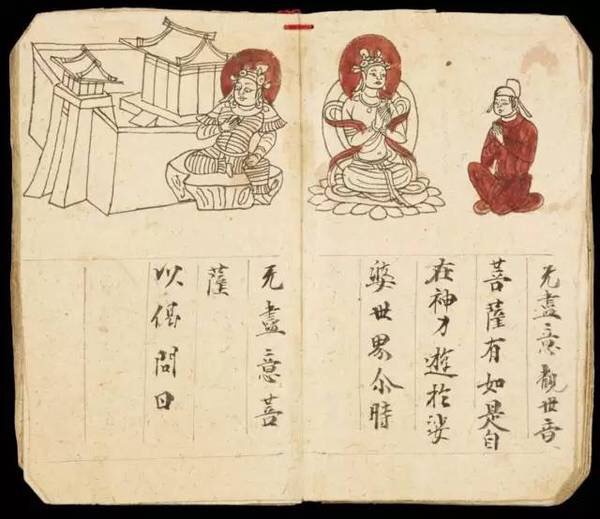 无盡意觀世音
菩薩有如是自
在神力遊於娑
婆世界尒時
无盡意菩
薩
以偈問曰